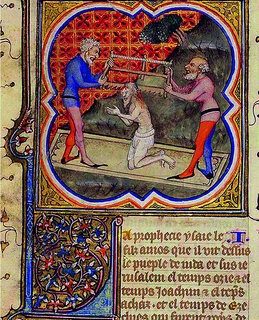 La prophecie ysaie le
filz amos que il vit dessus
le pueple de iuda et sus ie
rusalem el temps ozie et el
temps Joachim et el temps
achaz et el temps de Eze